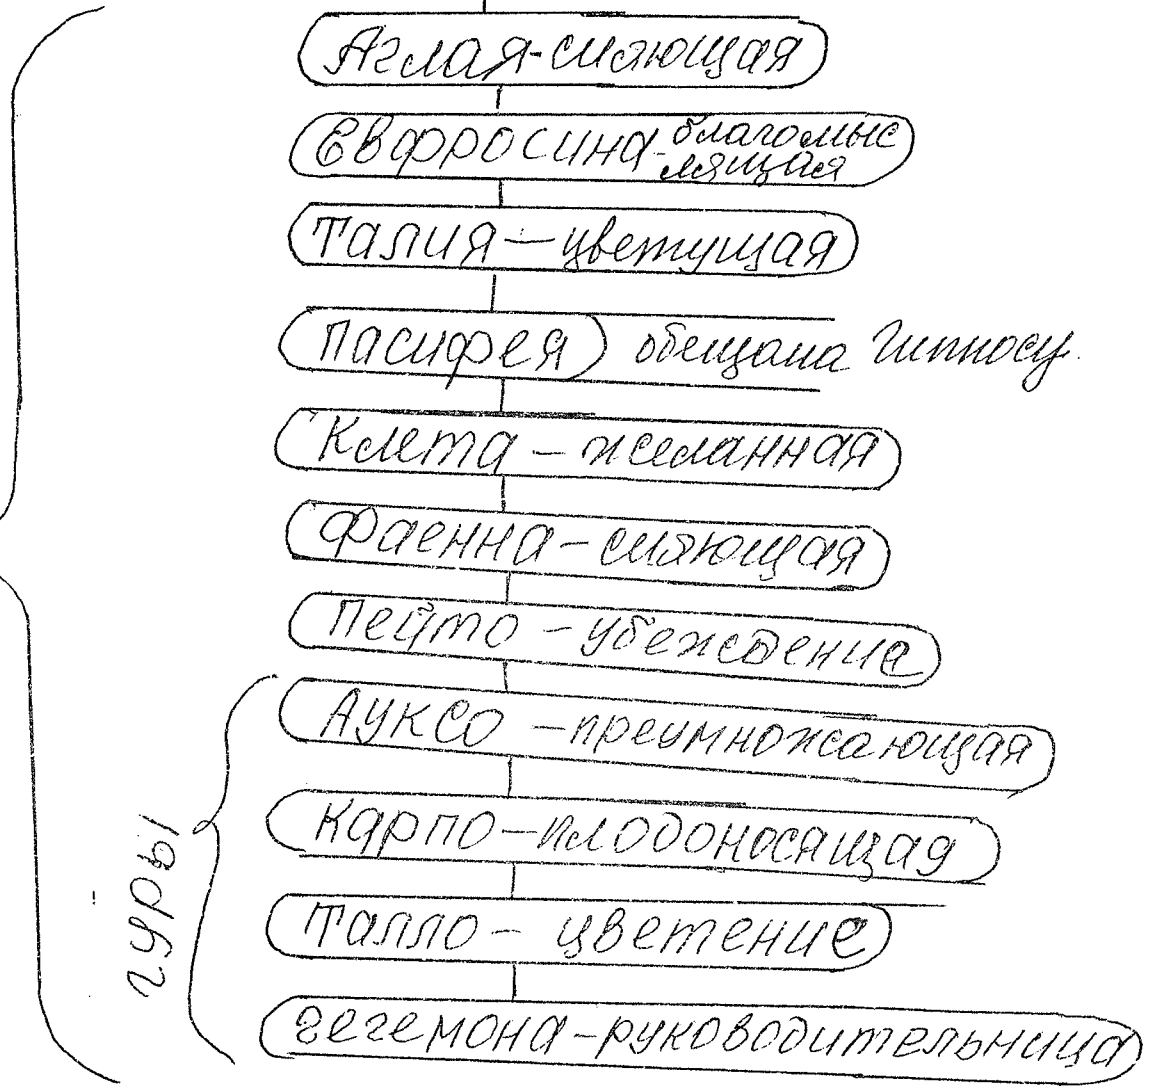 Аглая-сияющая
Евфросина-благомыс
лящая
Талия — цветущая
Пасифея обещана Гипносу.
Клета — желанная
Фаенна — сияющая
Пейто — убеждение
Ауксо — преумножающая
Карпо — плодоносящая
Талло — цветение
гегемона — руководительница
гуры